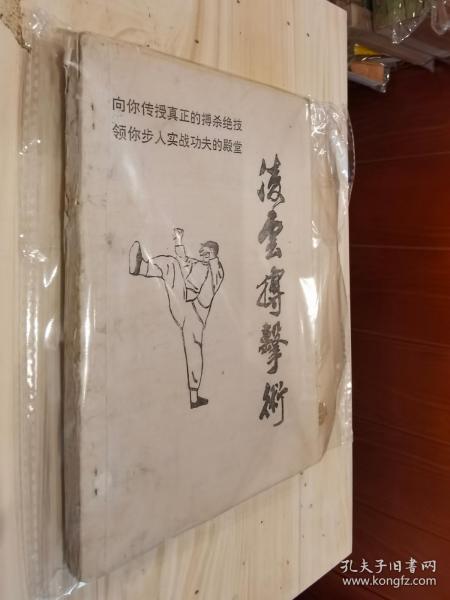 向你传授真正的搏杀绝技
领你步入实战功夫的殿堂
凌雲搏擊術
孔夫子旧书网
www.kongfz.com